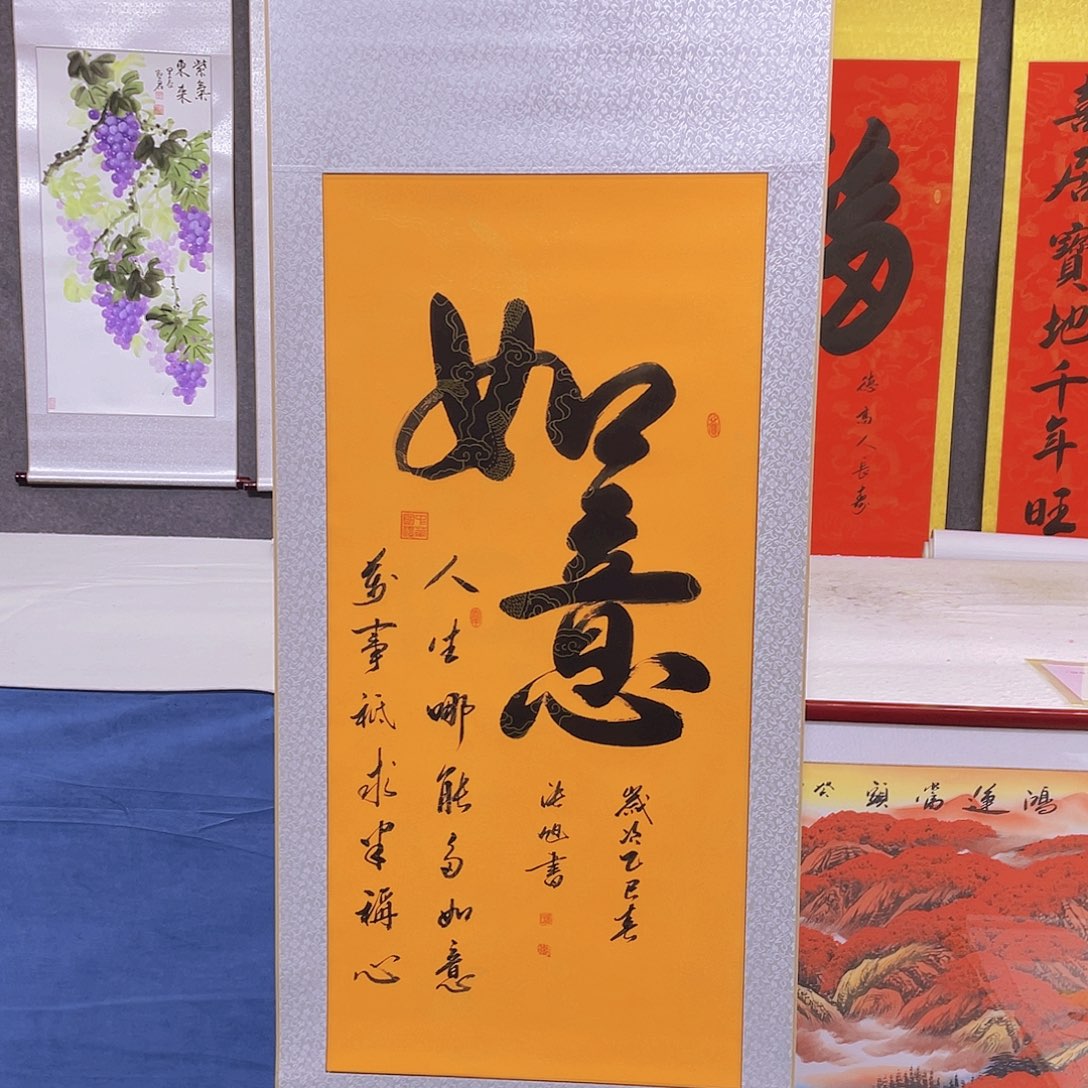 如意
人生哪能多如意
萬事祇求半稱心
歲次乙巳春
張旭書
紫氣東来
德高人長壽
喜居寶地千年旺
鴻運當頭